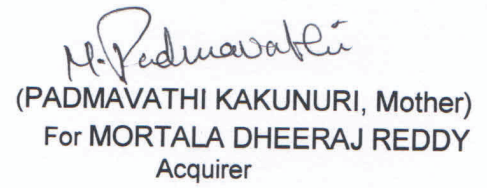 M. Padmavathi
(PADMAVATHI KAKUNURI, Mother)
For MORTALA DHEERAJ REDDY
Acquirer